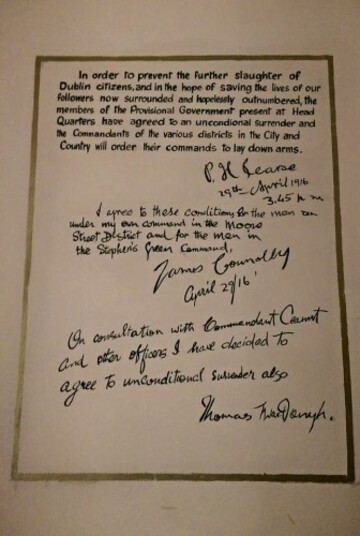 In order to prevent the further slaughter of
Dublin citizens, and in the hope of saving the lives of our
followers now surrounded and hopelessly outnumbered, the
members of the Provisional Government present at Head
Quarters have agreed to an uncondional surrender and
the Commandants of the various districts in the City and
Country will order their commands to lay down arms.
P. H. Pearse
29th April 1916
3.45 p.m
I agree to these conditions for the men
under my own command in the Moore
Street District and for the men in
the Stephen's Green Command.
James Connolly
April 29/16
On consultation with Commandant Ceannt
and other officers I have decided to
agree to unconditional surrender also
Thomas MacDonagh.